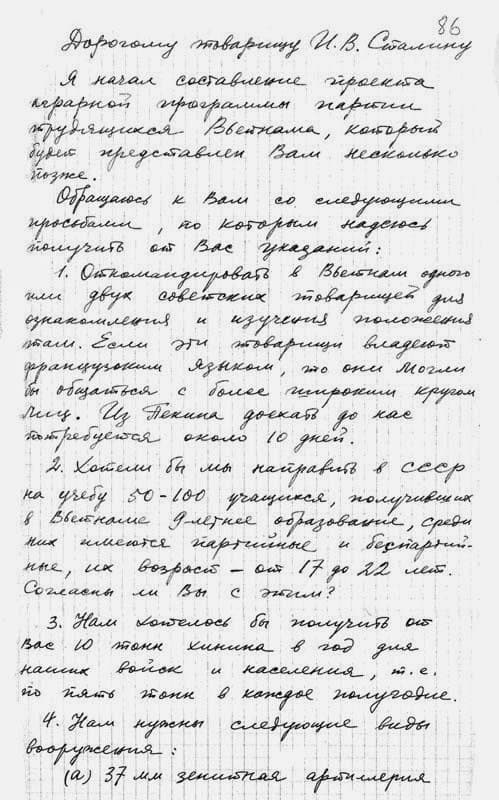 86
Дорогому товарищу И. В. Сталину
Я начал составление проекта
аграрной программы партии
трудящихся Вьетнама, который
будет представлен Вам несколько
позже.
Обращаюсь к Вам со следующими
просьбами, по которым надеюсь
получить от Вас указаний:
1. Откомандировать в Вьетнам одного
или двух советских товарищей для
ознакомления и изучения положения
там. Если эти товарищи владеют
французским языком, то они могли
бы общаться с более широким кругом
лиц. Из Пекина доехать до нас
потребуется около 10 дней.
2. Хотели бы мы направить в СССР
на учебу 50-100 учащихся, получивших
в Вьетнаме 9-летнее образование, среди
них имеются партийные и беспартий-
ные, их возраст – от 17 до 22 лет.
Согласны ли Вы с этим?
3. Нам хотелось бы получить от
Вас 10 тонн хинина в год для
наших войск и населения, т.е.
по пять тонн в каждое полугодие.
4. Нам нужны следующие виды
вооружения:
(а) 37 мм зенитная артиллерия